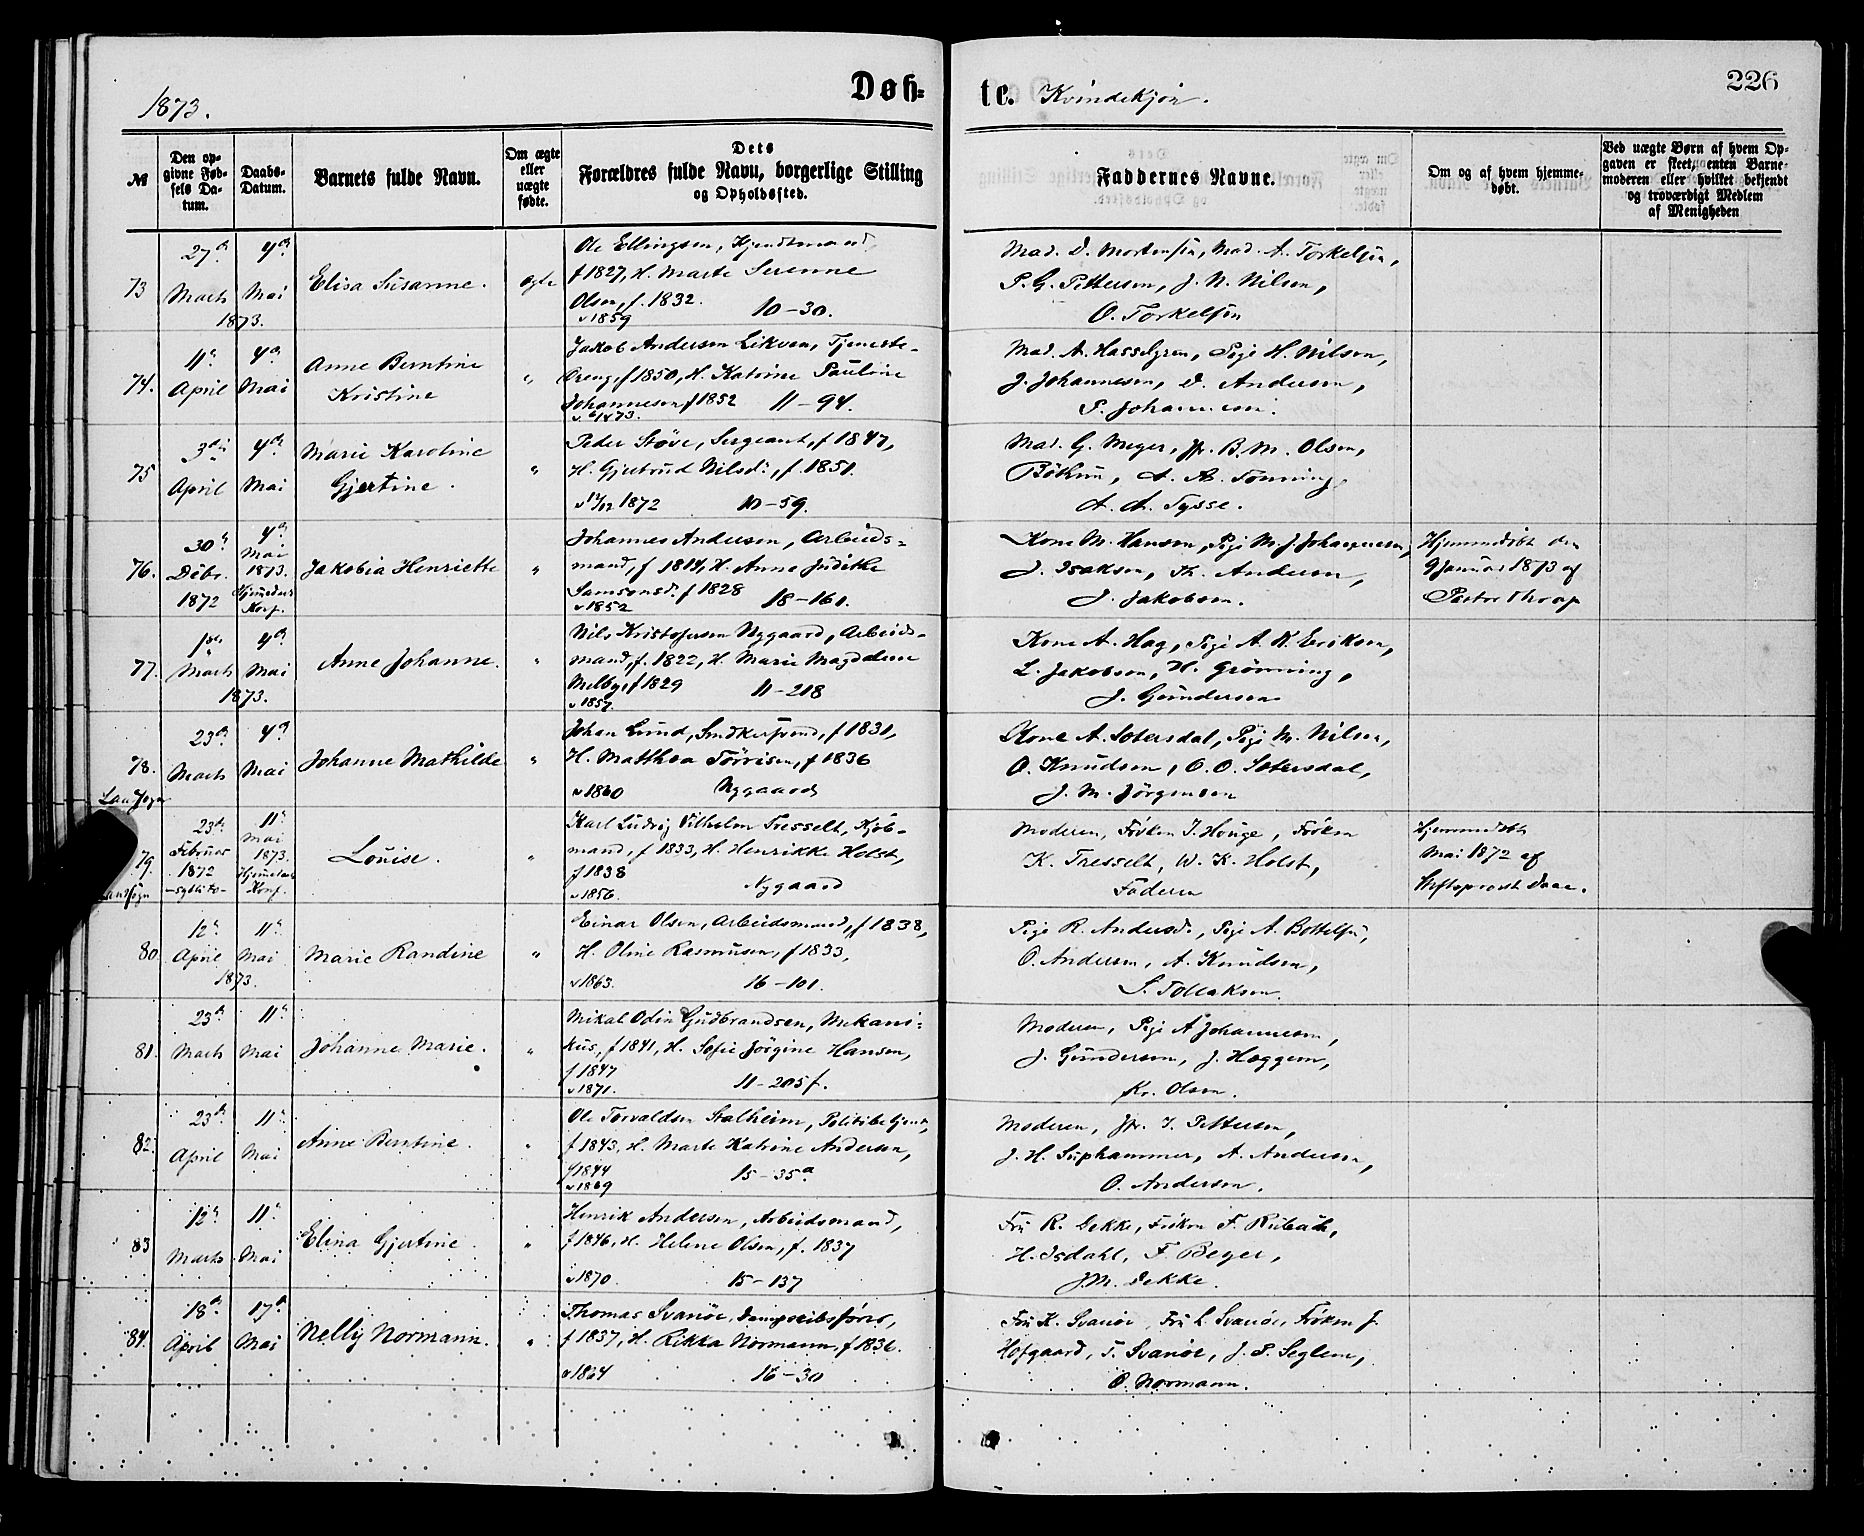 1873.
Døb-
te. Kvindekjøn.
226
№
Den op-
givne Fød-
sels Da-
tum.
Daabs-
Datum.
Barnets fulde Navn.
Om ægte
eller
uægte
fødte.
Dets
Forældres fulde Navn, borgerlige Stilling
og Opholdssted.
Faddernes Navne.
Om og af hvem hjemme-
døbt.
Ved uægte Børn af hvem Op-
gaven er skeet, enten Barne-
moderen eller hvilket bekjendt
og troværdigt Medlem
af Menigheden
73
27de
Marts
4de
Mai
1873.
Elisa Susanne.
Ægte
Ole Ellingsen,
f 1827, H. Marte Serenne
Olsen, f. 1832.
v 1859 10-30.
Mad. D. Mortensen, Mad. A. Torkelsen,
P. G. Pettersen, J. N. Nilsen,
O. Torkelsen
74.
11te
April
4de
Mai
Anne Berntine
Kristine
"
Jakob Andersen Eikven, Tjeneste-
dreng, f 1850, H. Katrine Pauline
Johannesen f 1852 11-94.
Mad. A. Hasselgren, Pige H. Nilsen,
J. Johannesen, D. Andersen,
P. Johannesen.
75
3die
April
4de
Mai
Marie Karoline
Gjertine.
"
Peder Støve, Sergeant, f 1847,
H. Gjertrud Nilsd:, f. 1851.
1872 10-59.
Mad. G. Meyer, Jfr. B. M. Olsen,
A. A. Tonning,
A. A. Tysse.
76.
30te
Debr.
1872
4de
Mai
1873.
Jakobia Henriette
"
Johannes Andersen, Arbeids-
mand, f 1814, H. Anne Judithe
Samsonsd. f 1828
v 1852 18-161.
Kone M. Hansen, Pige M. J. Johannesen,
J. Isaksen, K. Andersen,
J. Jakobsen.
Hjemmedøbt den
9 Januar 1873 af
Pastor Thrap
77.
1ste
Marts
4de
Mai
1873.
Anne Johanne.
"
Nils Kristofersen Nygaard, Arbeids-
mand, f. 1822, H. Marie Magdalene
Melbye, f 1829 11-218
v 1857.
Kone A. Hag, Pige A. K. Eriksen,
L. Jakobsen, H. Grønning,
J. Gundersen
78.
Landsogn
23de
Marts
4de
Mai
Johanne Mathilde
"
Johan Lund, f 1831,
H. Matthea Tørrisen, f 1836
v 1860 Nygaard
Kone A. Sætersdal, Pige M. Nilsen,
O. Knudsen, O. O. Sætersdal,
J. M. Jørgensen
79.
Landsogn
23de
Februar
1872
11te
Mai
1873.
Louise.
"
Karl Ludvig Vilhelm Tresselt, Kjøb-
mand, f 1833, H. Henrikke Holst,
f 1838
v 1856. Nygaard
Moderen, Frøken J. Houge, Frøken
K. Tresselt, W. K. Holst,
Faderen
Hjemmedøbt
Mai 1872 af
Stiftsprovst Daae.
80.
12te
April
11te
Mai
1873.
Marie Randine
"
Einar Olsen, Arbeidsmand, f 1838,
H. Oline Rasmusen, f 1833,
v 1863. 16-101.
Pige R. Andersd:, Pige A. Bottelsen,
O. Andersen, A. Knudsen,
S. Tollaksen.
81.
23de
Marts
11te
Mai
Johanne Marie.
"
Mikal Odin Gudbrandsen, Mekani-
kus, f 1841, H. Sofie Jørgine Hansen,
f 1847
v 1871. 11-205 f.
Moderen, Pige A Johannesen,
J. Gundersen, J. Haggem,
Kr. Olsen.
82.
23de
April
11te
Mai
Anne Berntine.
"
Ole Torvaldsen Stalheim, Politibetjent,
f 1843, H. Marte Katrine Andersen,
f 1844
v 1869 15-35 a
Moderen, Jfr. J. Pettersen,
J. H. Suphammer, A. Andersen,
O. Andersen.
83
12te
Marts
11te
Mai
Elina Gjertine
"
Henrik Andersen, Arbeidsmand,
f 1846, H. Helene Olsen, f. 1837
v 1870. 15-137
Fru R. Dekke, Frøken F. Rubach,
H. Isdahl, F. Beyer,
J. M. Dekke.
84.
18de
April
17de
Mai
Nelly Normann.
"
Thomas Svanøe, Dampskibsfører,
f 1837, H. Rikka Normann, f 1836.
v 1864 16-30
Fru K. Svanøe, Fru L. Svanøe, Frøken J.
Hofgaard, T. Svanøe, J. P. Seglem,
O. Normann.